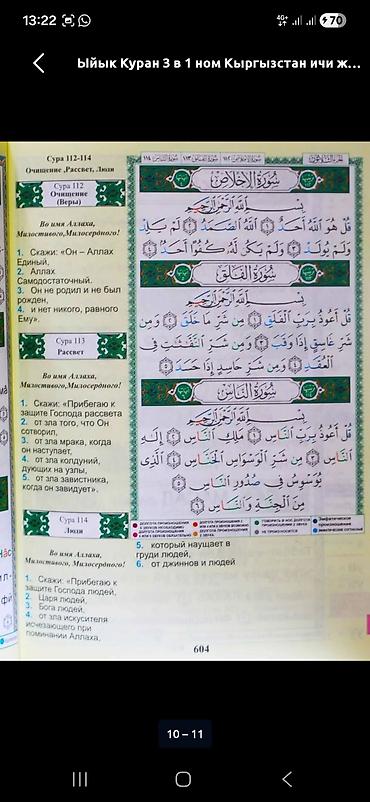 13:22
4G+
70
Ыйык Куран 3 в 1 ном Кыргызстан ичи ж...
Сура 112-114
Очищение ,Рассвет, Люди
Сура 112
Очищение
(Веры)
Во имя Аллаха,
Милостивого,Милосердного!
1. Скажи: «Он – Аллах
Единый,
2. Аллах
Самодостаточный.
3. Он не родил и не был
рожден,
4. и нет никого, равного
Ему».
Сура 113
Рассвет
Во имя Аллаха,
Милостивого,Милосердного!
1. Скажи: «Прибегаю к
защите Господа рассвета
2. от зла того, что Он
сотворил,
3. от зла мрака, когда
он наступает,
4. от зла колдуний,
дующих на узлы,
5. от зла завистника,
когда он завидует».
Сура 114
Люди
Во имя Аллаха,
Милостивого, Милосердного!
1. Скажи: «Прибегаю к
защите Господа людей,
2. Царя людей,
3. Бога людей,
4. от зла искусителя
исчезающего при
поминании Аллаха,
سُورَةُ الإِخْلَاصِ
بِسْمِ اللَّهِ الرَّحْمَٰنِ الرَّحِيمِ
قُلْ هُوَ اللَّهُ أَحَدٌ ١ اللَّهُ الصَّمَدُ ٢ لَمْ يَلِدْ
وَلَمْ يُولَدْ ٣ وَلَمْ يَكُن لَّهُ كُفُوًا أَحَدٌ ٤
سُورَةُ الْفَلَقِ
بِسْمِ اللَّهِ الرَّحْمَٰنِ الرَّحِيمِ
قُلْ أَعُوذُ بِرَبِّ الْفَلَقِ ١ مِن شَرِّ مَا خَلَقَ ٢ وَمِن
شَرِّ غَاسِقٍ إِذَا وَقَبَ ٣ وَمِن شَرِّ النَّفَّاثَاتِ فِي
الْعُقَدِ ٤ وَمِن شَرِّ حَاسِدٍ إِذَا حَسَدَ ٥
سُورَةُ النَّاسِ
بِسْمِ اللَّهِ الرَّحْمَٰنِ الرَّحِيمِ
قُلْ أَعُوذُ بِرَبِّ النَّاسِ ١ مَلِكِ النَّاسِ ٢ إِلَٰهِ
النَّاسِ ٣ مِن شَرِّ الْوَسْوَاسِ الْخَنَّاسِ ٤ الَّذِي
يُوَسْوِسُ فِي صُدُورِ النَّاسِ ٥
مِنَ الْجِنَّةِ وَالنَّاسِ ٦
5. который наущает в
груди людей,
6. от джиннов и людей
604
10 – 11